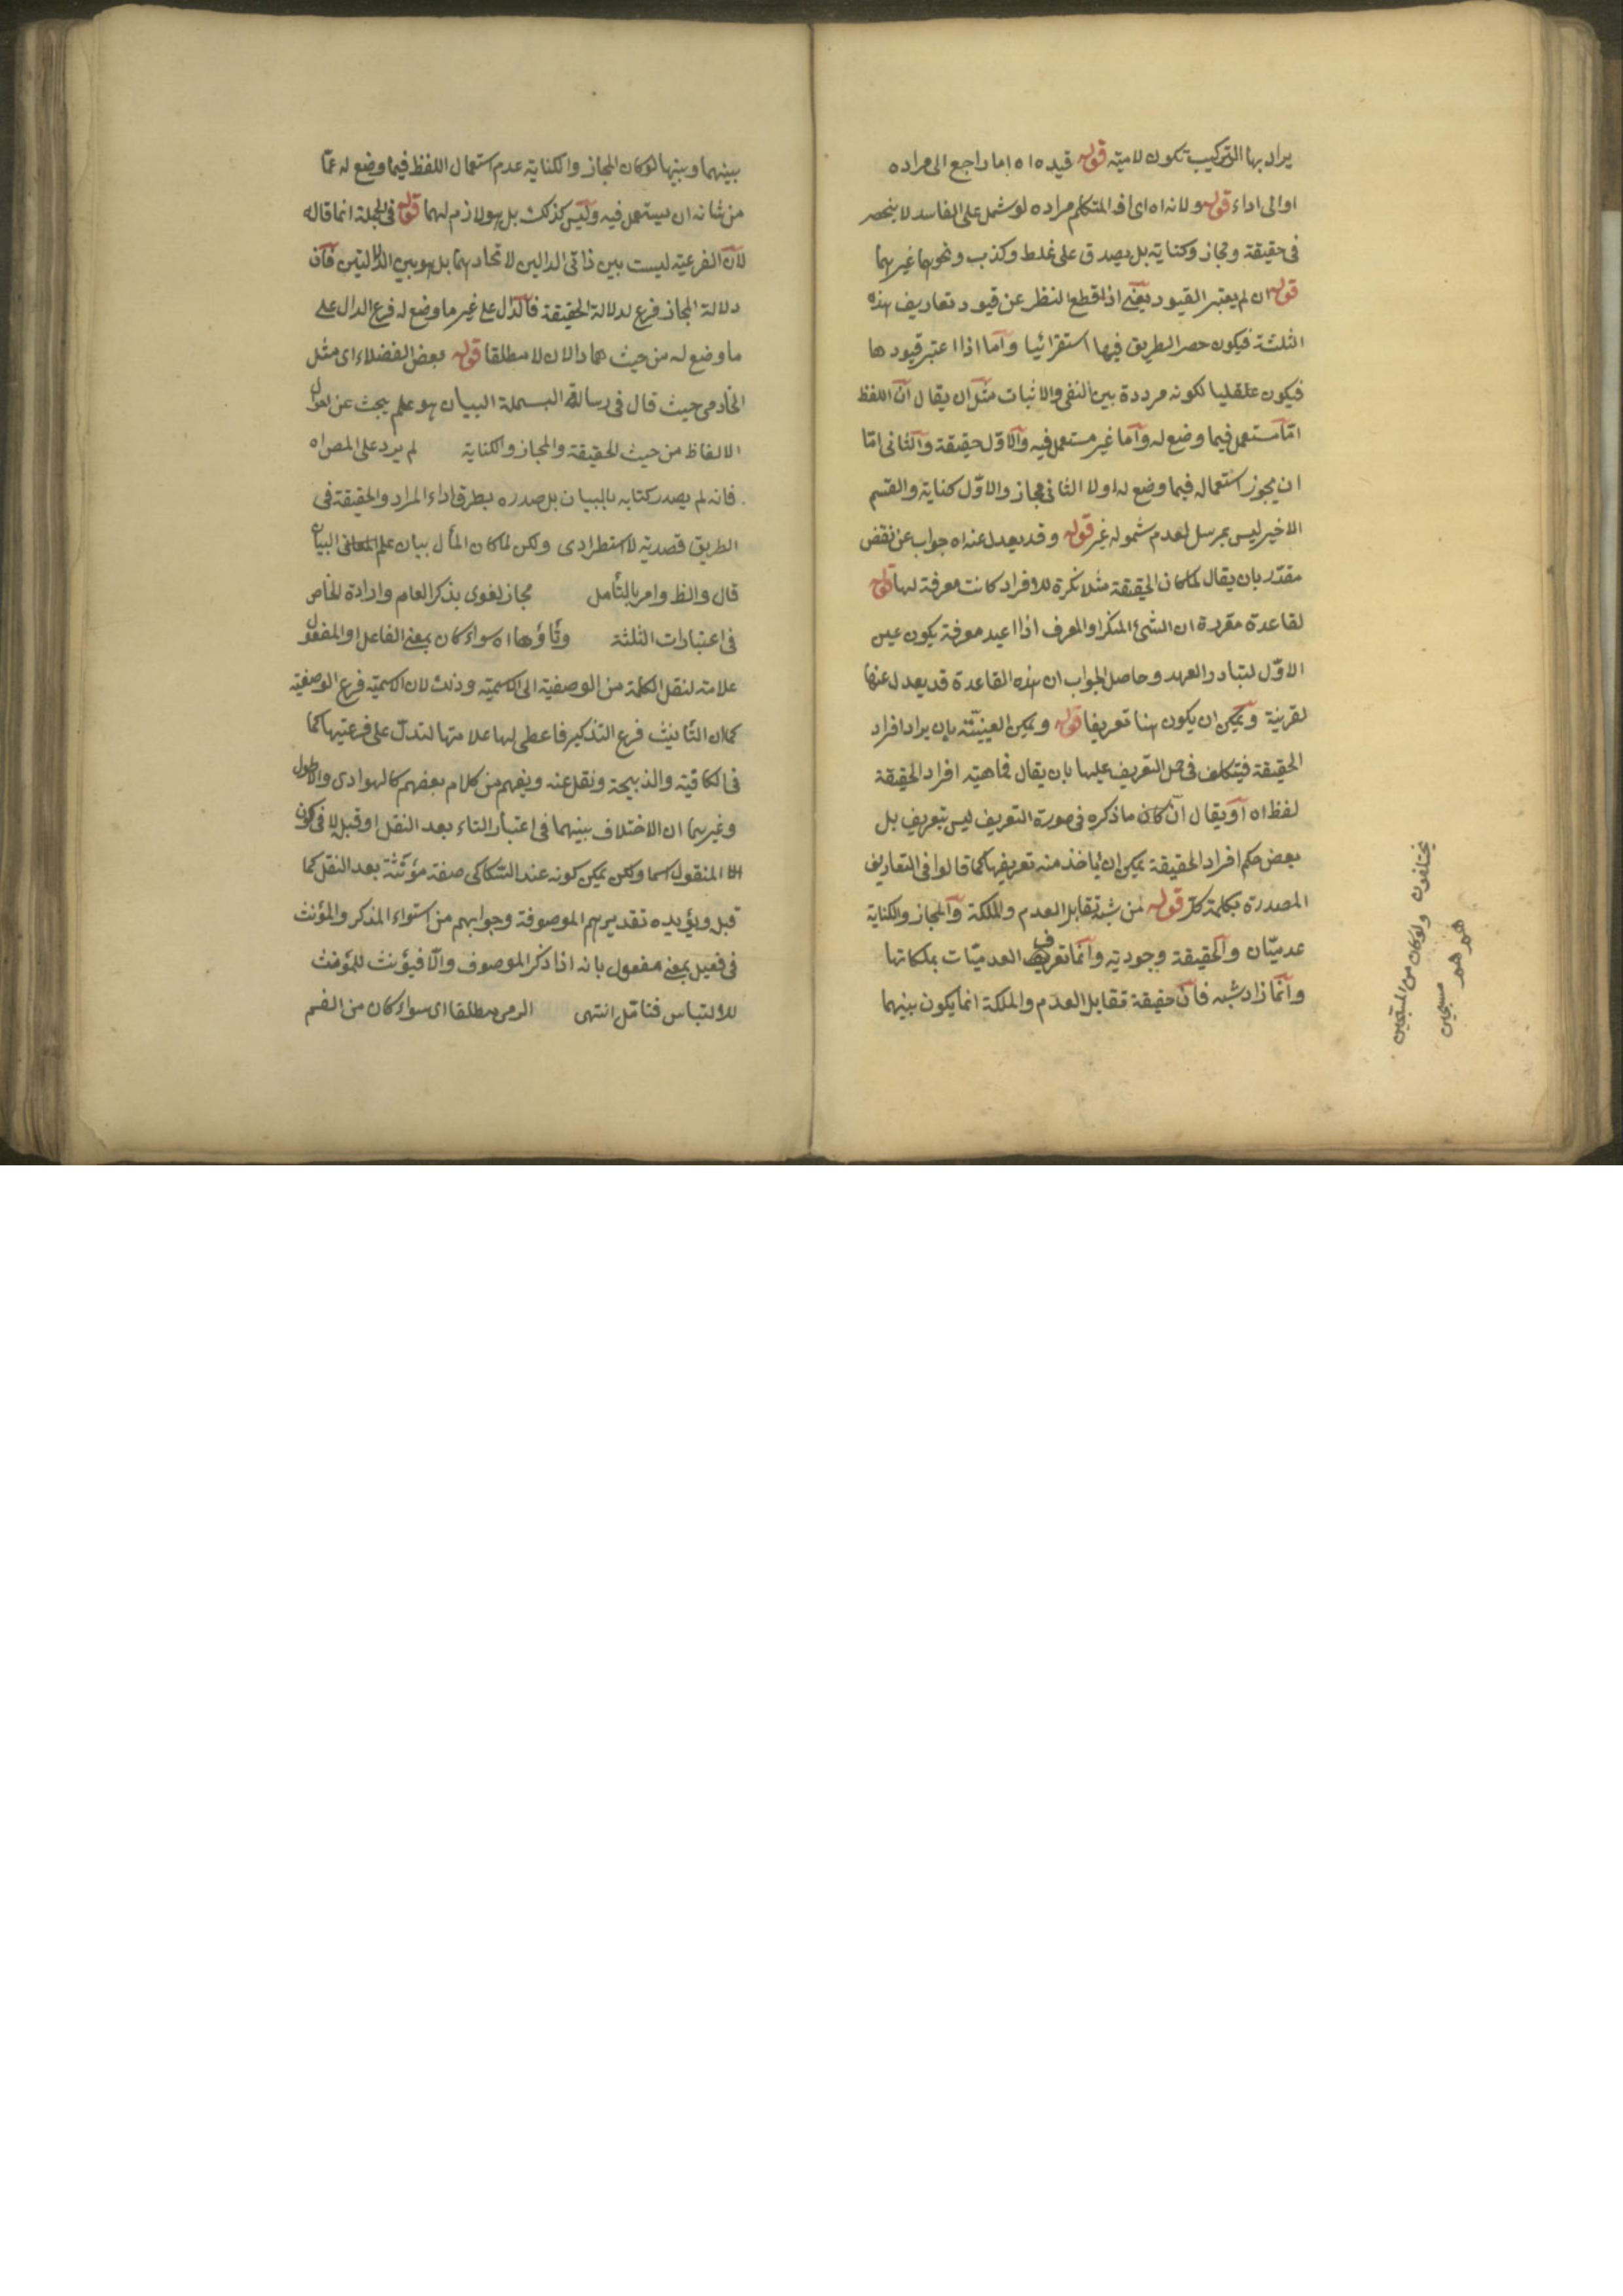 يراد بها التركيب تكون لامية قوله قيده اه اما راجع الى مراده
اوالى اداء قوله ولانه اه اى افد المتكلم مراده لو شمل على الفاسد لا ينحصر
فى حقيقة ومجاز وكناية بل يصدق على غلط وكذب ونحوهما غيرهما
قوله ان لم يعتبر القيود يعنى اذا قطع النظر عن قيود تعاريف هذه
الثلثة فيكون حصر الطريق فيها استقرائيا واما اذا اعتبر قيودها
فيكون عقليا لكونه مرددة بين النفى والاثبات مثل ان يقال ان اللفظ
اما مستعمل فيما وضع له واما غير مستعمل فيه والاول حقيقة والثانى اما
ان يجوز استعماله فيما وضع له اولا الثانى مجاز والاول كناية والقسم
الاخير ليس بمرسل لعدم شموله غير قوله وقد يعدل عنه اه جواب عن نقض
مقدر بان يقال لما كان الحقيقة مثلا نكرة للافراد كانت معرفة لها قوله
لقاعدة مقررة ان الشئ المنكر او المعرف اذا اعيد معرفة يكون عين
الاول لتبادر العهد وحاصل الجواب ان هذه القاعدة قد يعدل عنها
لقرينة ويمكن ان يكون هنا تعريفا قوله ويمكن العينية بان يراد افراد
الحقيقة فيتكلف فى حمل التعريف عليها بان يقال فماهية افراد الحقيقة
لفظ اه او يقال ان كان ما ذكره فى صورة التعريف ليس بتعريف بل
بعض حكم افراد الحقيقة يمكن ان يأخذ منه تعريفها كما قالوا فى التعاريف
المصدرة بكلمة كل قوله من شبه تقابل العدم والملكة والمجاز والكناية
عدميتان والحقيقة وجودية وانما تعريف العدميات بملكاتها
وانما زاد شبه فان حقيقة تقابل العدم والملكة انما يكون بينهما
يختلفون ولو كان من
هم هم
بينهما وبينها لو كان المجاز والكناية عدم استعمال اللفظ فيما وضع له عما
من شانه ان يستعمل فيه وليس كذلك بل هو لازم لهما قوله فى الجملة انما قاله
لان الفرعية ليست بين ذاتى الدالين لاتحادهما بل هو بين الدلالتين فان
دلالة المجاز فرع لدلالة الحقيقة فالدال على غير ما وضع له فرع الدال على
ما وضع له من حيث هما دالان لا مطلقا قوله بعض الفضلاء اى مثل
الخادمى حيث قال فى رسالة البسملة البيان هو علم يبحث عن احوال
الالفاظ من حيث الحقيقة والمجاز والكناية لم يرد على المص اه
فانه لم يصدر كتابه بالبيان بل صدره بطرق اداء المراد والحقيقة فى
الطريق قصدية لا استطرادى ولكن لما كان المأل بيان علم البيان
قال والظ وامر بالتأمل مجاز لغوى بذكر العام وارادة الخاص
فى اعتبارات الثلثة وتاؤها اه سواء كان بمعنى الفاعل او المفعول
علامة لنقل الكلمة من الوصفية الى الاسمية وذلك لان الاسمية فرع الوصفية
كما ان التأنيث فرع التذكير فاعطى لها علامتها لتدل على فرعيتها كما
فى الكافية والذبيحة ونقل عنه ويفهم من كلام بعضهم كالهوادى والاطول
وغيرهما ان الاختلاف بينهما فى اعتبار التاء بعد النقل او قبله لا فى كون
المنقول اسما ولكن يمكن كونه عند السكاكى صفة مؤنثة بعد النقل كما
قبل ويؤيده تقديرهم الموصوفة وجوابهم من استواء المذكر والمؤنث
فى فعيل بمعنى مفعول بانه اذا ذكر الموصوف والا فيؤنث للمؤنث
للالتباس فتأمل انتهى الرمى مطلقا اى سواء كان من الفم